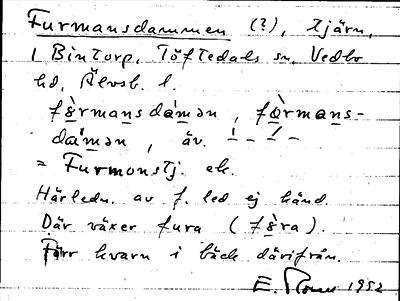 Furmansdammen (?), tjärn,
i Bintorp, Töftedals sn, Vedbo
hd, Älvsb. l.
fø̀rmansdámən, fø̀rmans-
dámən, äv. ´ – ´ –
= Furmonstj. ek.
Härledn. av f. led ej känd.
Där växer fura (fø̀ra).
Förr kvarn i bäck därifrån.
E. 1952